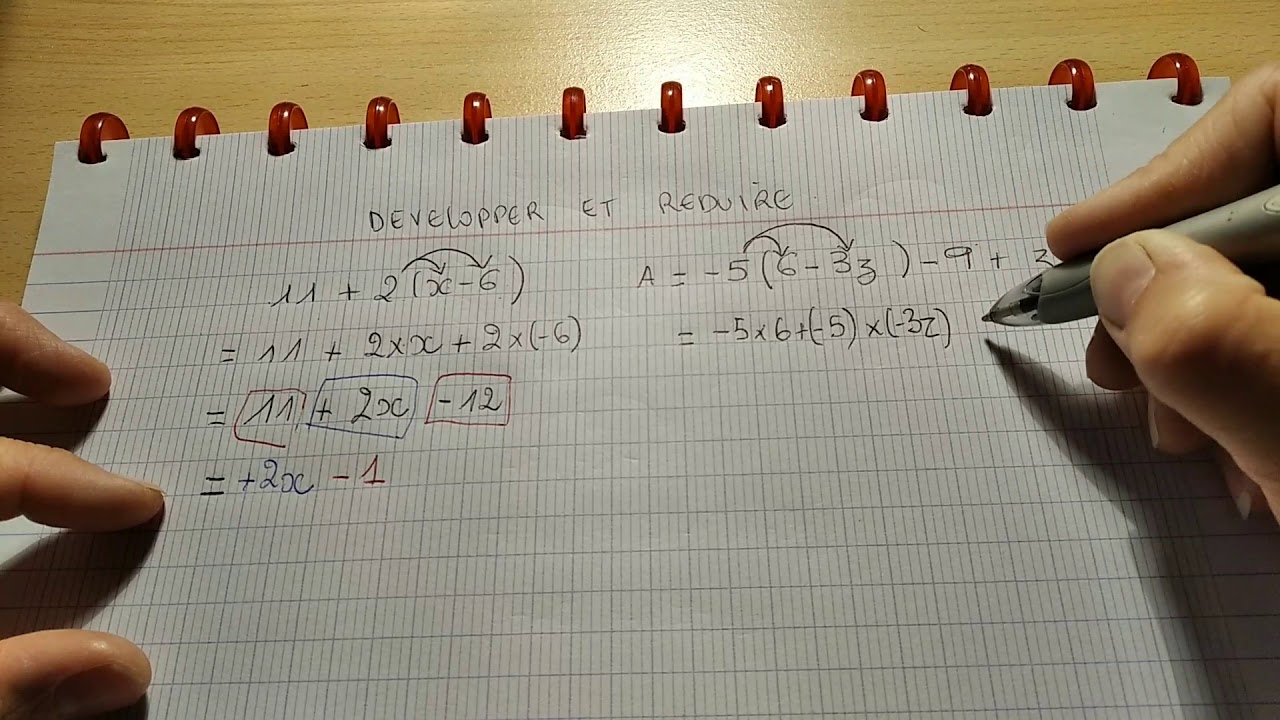 DEVELOPPER ET REDUIRE
11 + 2(x-6)
= 11 + 2×x + 2×(-6)
= 11 + 2x -12
= +2x -1
A = -5(6-3z) - 9 +
= -5×6+(-5)×(-3z)